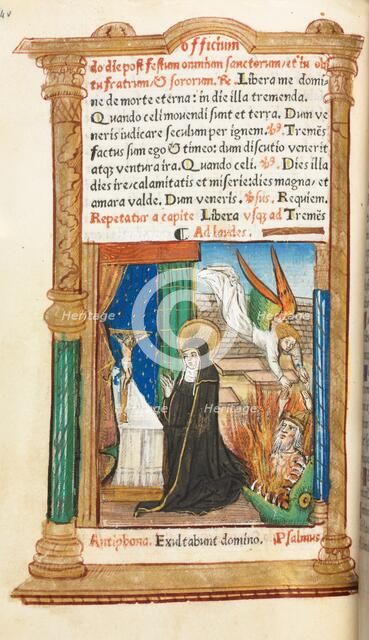 officium
do die post festum omnium sanctorum/et in obi
tu fratrum/& sororum. R. Libera me domi⸗
ne de morte eterna: in die illa tremenda.
Quando celi mouendi sunt et terra. Dum ve
neris iudicare seculum per ignem. Vs. Tremēs
factus sum ego & timeo: dum discutio venerit
atq; ventura ira. Quando celi. Vs. Dies illa
dies ire/calamitatis et miserie: dies magna/et
amara valde. Dum veneris. Vsus. Requiem.
Repetatur a capite Libera vsq; ad Tremēs
¶ Ad laudes.
Antiphona. Exultabunt domino. Psalmus
Heritage Heritage
Images Images
Heritage Heritage
Images